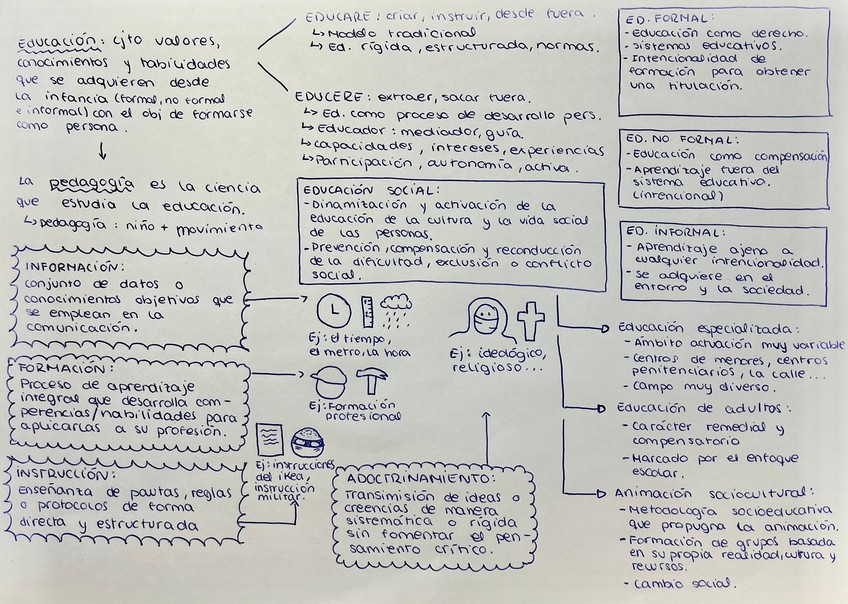 Educación: cjto valores,
conocimientos y habilidades
que se adquieren desde
la infancia (formal, no formal
e informal) con el obj de formarse
como persona.
↓
La pedagogía es la ciencia
que estudia la educación.
↳ pedagogía : niño + movimiento
EDUCARE : criar, instruir, desde fuera.
↳ Modelo tradicional
↳ Ed. rígida, estructurada, normas.
EDUCERE : extraer, sacar fuera.
↳ Ed. como proceso de desarrollo pers.
↳ Educador : mediador, guía.
↳ capacidades, intereses, experiencias
↳ Participación, autonomía, activa.
ED. FORMAL:
- Educación como derecho.
- Sistemas educativos.
- Intencionalidad de
formación para obtener
una titulación.
ED. NO FORMAL:
- Educación como compensación
- Aprendizaje fuera del
sistema educativo.
(intencional)
ED. INFORMAL:
- Aprendizaje ajeno a
cualquier intencionalidad.
- Se adquiere en el
entorno y la sociedad.
EDUCACIÓN SOCIAL:
- Dinamización y activación de la
educación de la cultura y la vida social
de las personas.
- Prevención, compensación y reconducción
de la dificultad, exclusión o conflicto
social.
INFORMACIÓN:
conjunto de datos o
conocimientos objetivos que
se emplean en la
comunicación.
Ej: el tiempo,
el metro, la hora
FORMACIÓN:
Proceso de aprendizaje
integral que desarrolla com-
petencias/habilidades para
aplicarlas a su profesión.
Ej: Formación
profesional
INSTRUCCIÓN:
Enseñanza de pautas, reglas
o protocolos de forma
directa y estructurada
Ej: instrucciones
del ikea,
instrucción
militar.
Ej: ideológico,
religioso...
ADOCTRINAMIENTO:
Transimisión de ideas o
creencias de manera
sistemática o rígida
sin fomentar el pen-
samiento crítico.
Educación especializada:
- Ámbito actuación muy variable
- Centros de menores, centros
penitenciarios, la calle...
- Campo muy diverso.
Educación de adultos:
- Carácter remedial y
compensatorio
- Marcado por el enfoque
escolar.
Animación sociocultural:
- Metodología socioeducativa
que propugna la animación.
- Formación de grupos basada
en su propia realidad, cultura y
recursos.
- Cambio social.